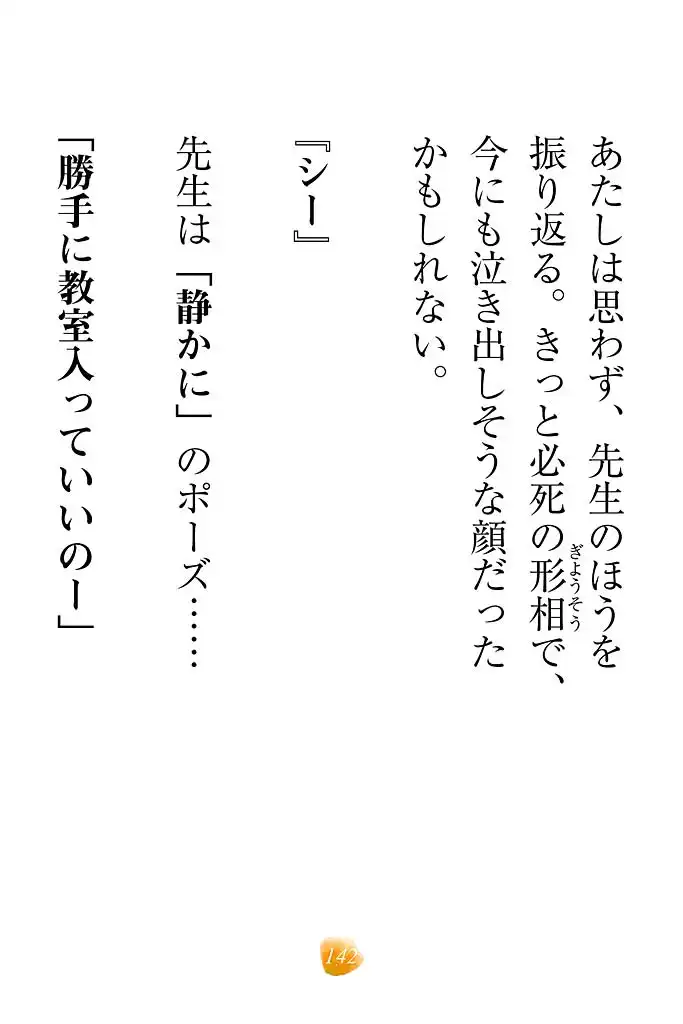 あたしは思わず、先生のほうを
振り返る。きっと必死の形相で、
ぎようそう
今にも泣き出しそうな顔だった
かもしれない。
『シー』
先生は「静かに」のポーズ……
「勝手に教室入っていいのー」
142